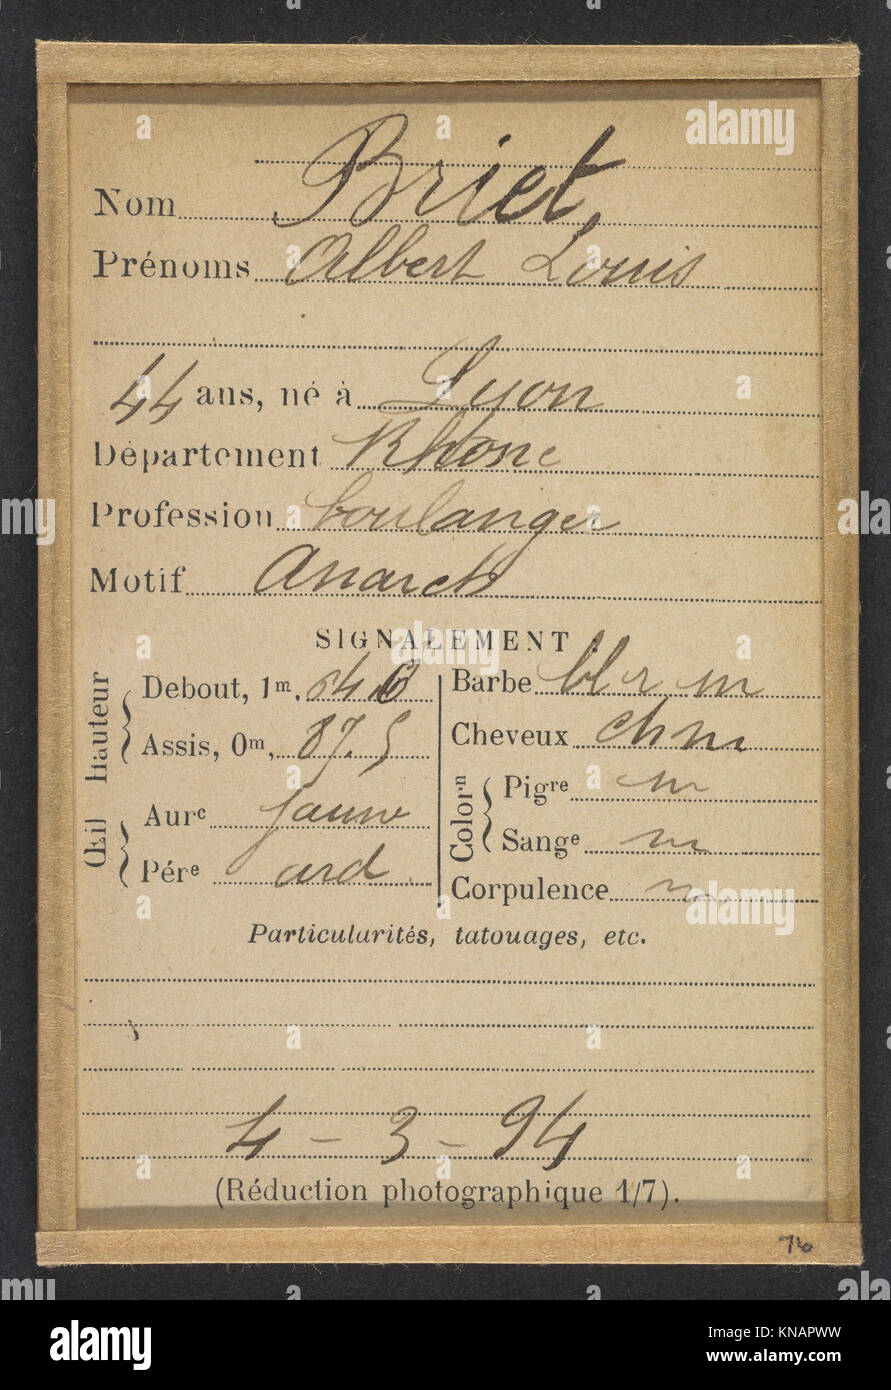 Nom Briet
Prénoms Albert Louis
44 ans, né à Lyon
Département Rhône
Profession boulanger
Motif Anarch
SIGNALEMENT
Hauteur
Debout, 1m. 64.6
Assis, 0m, 87.5
Œil
Aure jaune
Pére ard
Barbe bl r m
Cheveux ch m
Colorn
Pigre m
Sange m
Corpulence m
Particularités, tatouages, etc.
4 - 3 - 94
(Réduction photographique 1/7).
alamy
Image ID: KNAPWW
www.alamy.com